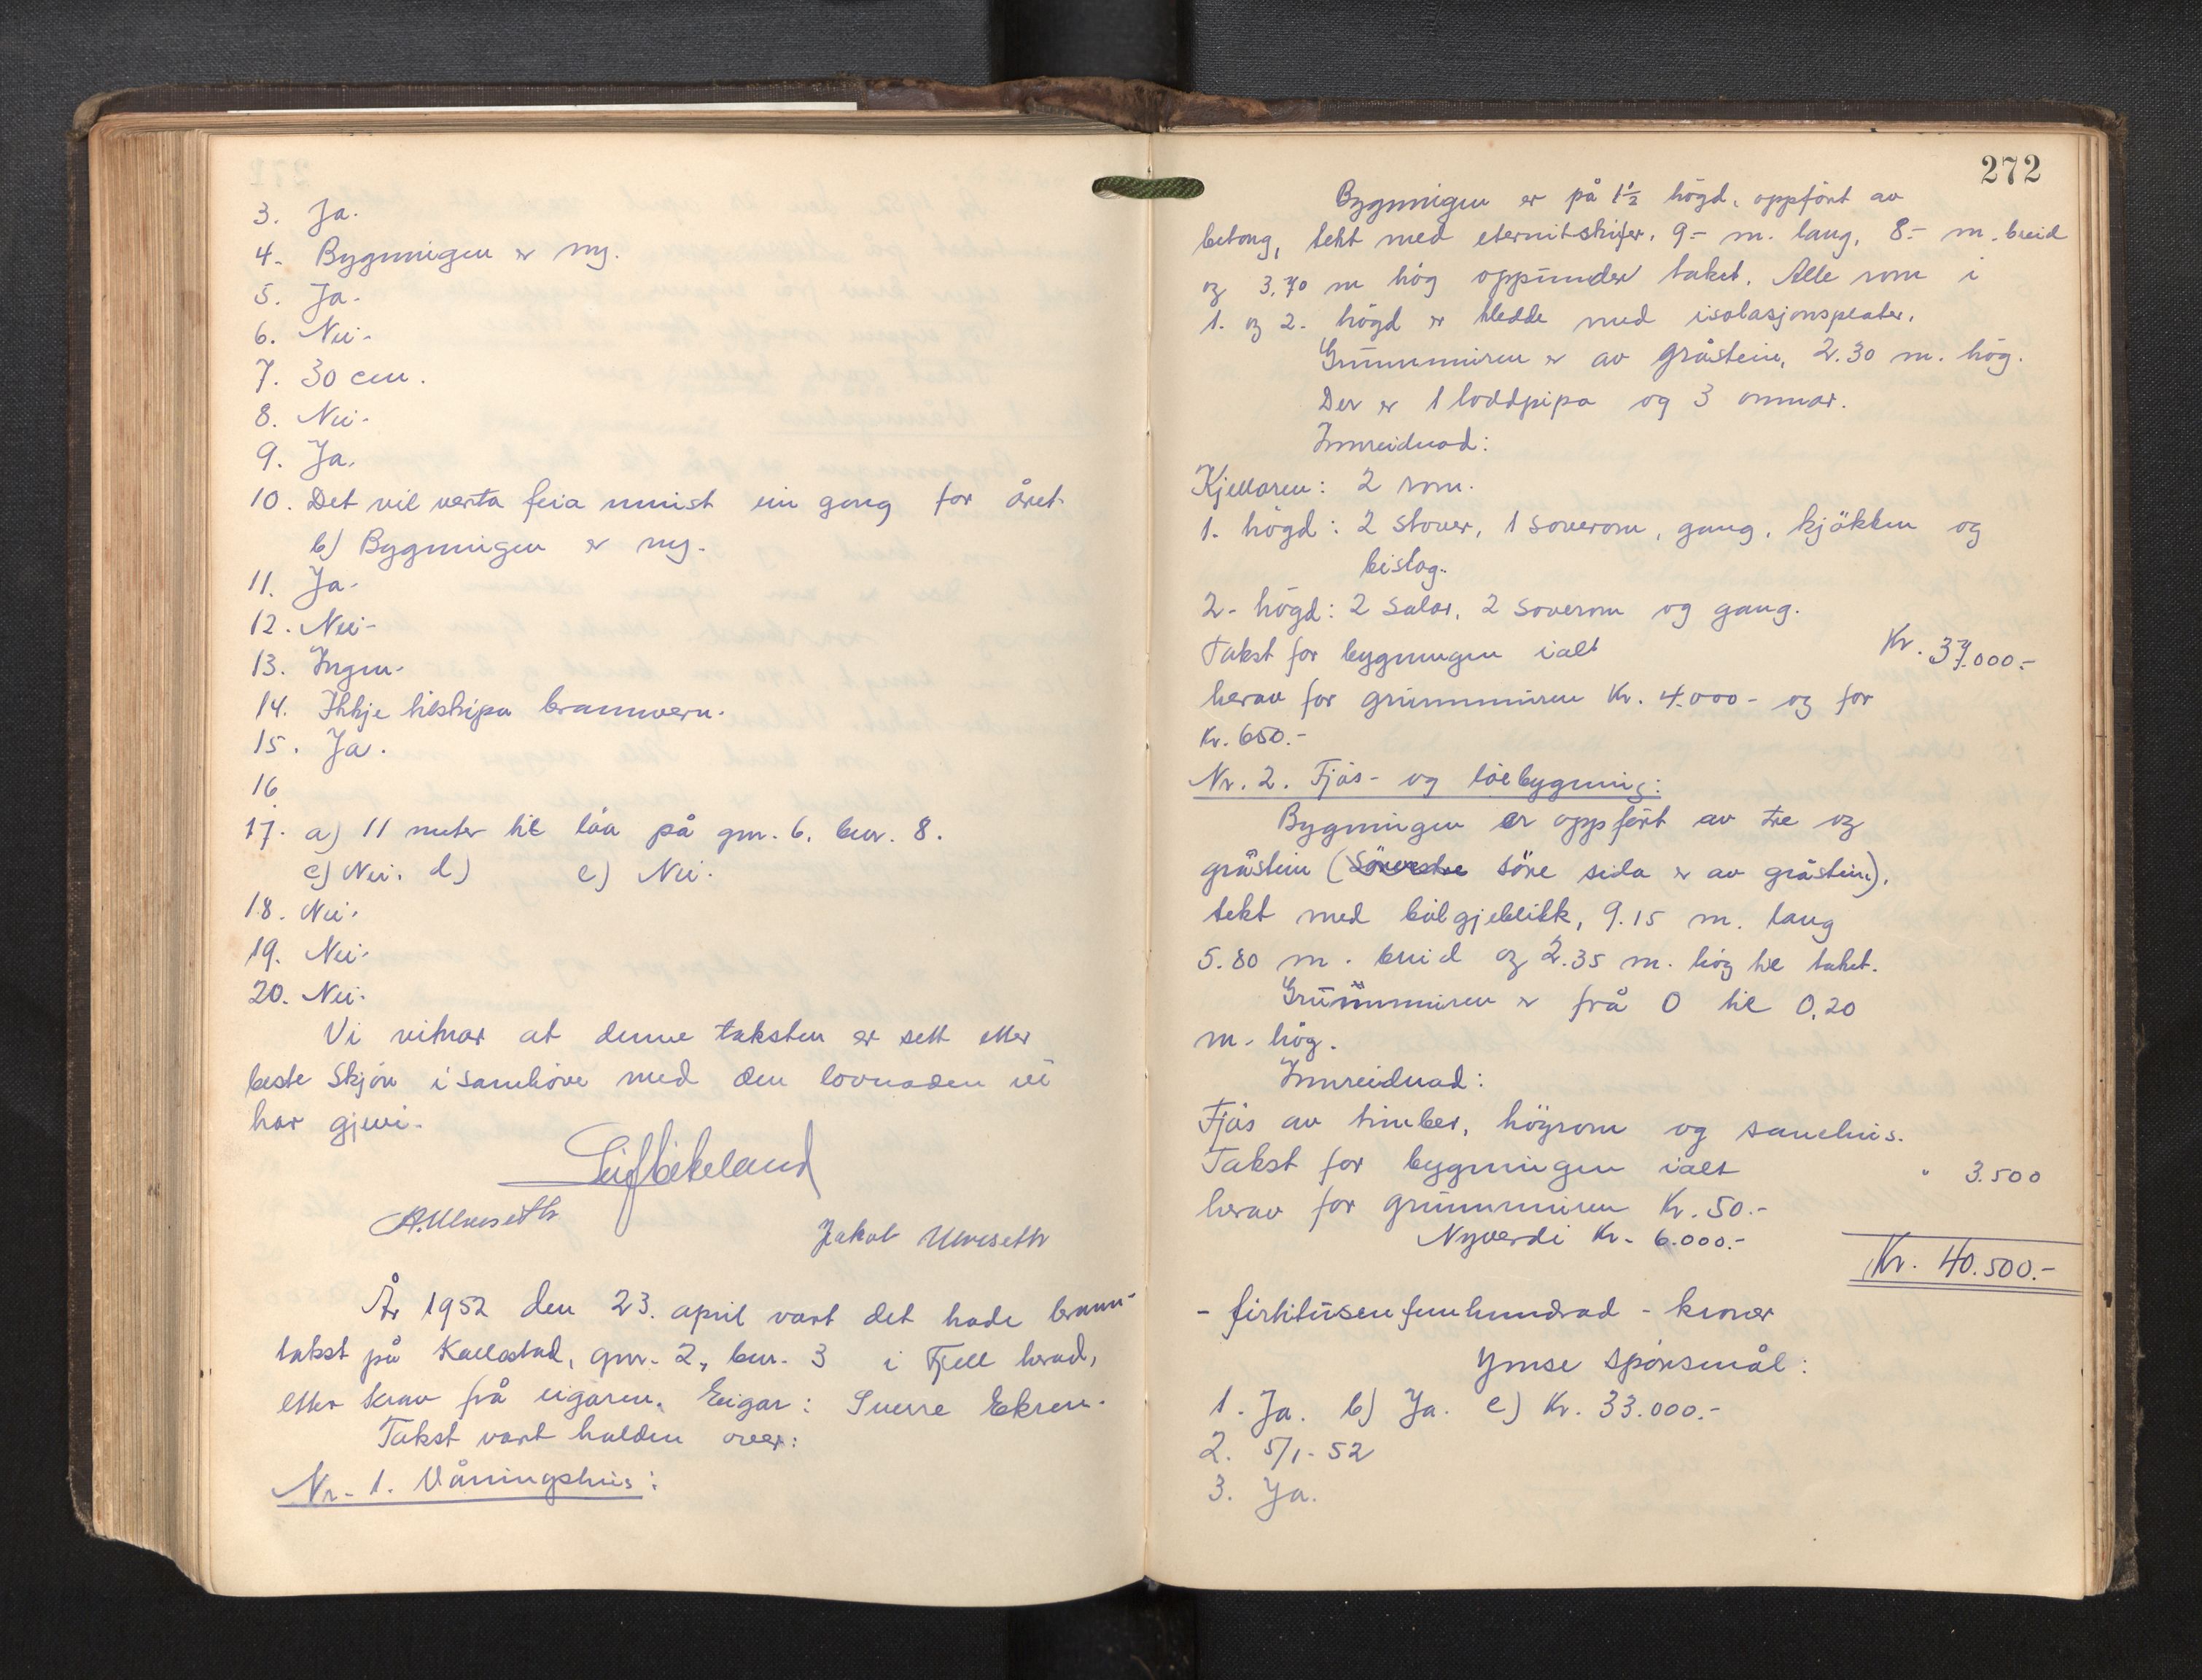 3. Ja.
4. Bygningen er ny.
5. Ja.
6. Nei.
7. 30 cm.
8. Nei.
9. Ja.
10. Det vil verta feia minst ein gong for året.
b) Bygningen er ny.
11. Ja.
12. Nei.
13. Ingen.
14. Ikkje tilskipa brannvern.
15. Ja.
16
17. a) 11 meter til löa på gnr. 6, bnr. 8.
c) Nei. d) e) Nei.
18. Nei.
19. Nei.
20. Nei.
Vi vitnar at denne taksten er sett etter
beste skjön i samhöve med den lovnaden vi
har gjevi.
Leif Bekeland
A. Ulveseth
Jakob Ulveseth
År 1952 den 23. april vart det hade brann-
takst på Kallestad, gnr. 2, bnr. 3 i Fjell herad,
etter krav frå eigaren. Eigar: Sverre Ekren.
Takst vart halden over:
Nr. 1. Våningshus:
272
Bygningen er på 1½ högd, oppfört av
betong, tekt med eternitskifer, 9.- m. lang, 8.- m. breid
og 3.70 m hög oppunder taket. Alle rom i
1. og 2. högd er kledde med isolasjonsplater.
Grunnmuren er av gråstein, 2.30 m. hög.
Der er 1 loddpipa og 3 omnar.
Innreidnad:
Kjellaren: 2 rom.
1. högd: 2 stover, 1 soverom, gang, kjökken og
bislag.
2. högd: 2 salar, 2 soverom og gang.
Takst for bygningen ialt Kr. 37.000.-
herav for grunnmuren Kr. 4.000- og for
Kr. 650.-
Nr. 2. Fjös- og löebygning:
Bygningen er oppfört av tre og
gråstein (söre sida er av gråstein),
tekt med bölgjeblikk, 9.15 m. lang
5.80 m. breid og 2.35 m. hög til taket.
Grunnmuren er frå 0 til 0.20
m. hög.
Innreidnad:
Fjös av timber, höyrom og sauehus.
Takst for bygningen ialt " 3.500
herav for grunnmuren Kr. 50.-
Nyverdi Kr. 6.000.-
Kr. 40.500.-
- firtitusenfemhundrad - kroner
Ymse spörsmål:
1. Ja. b) Ja. c) Kr. 33.000.-
2. 5/1-52
3. Ja.